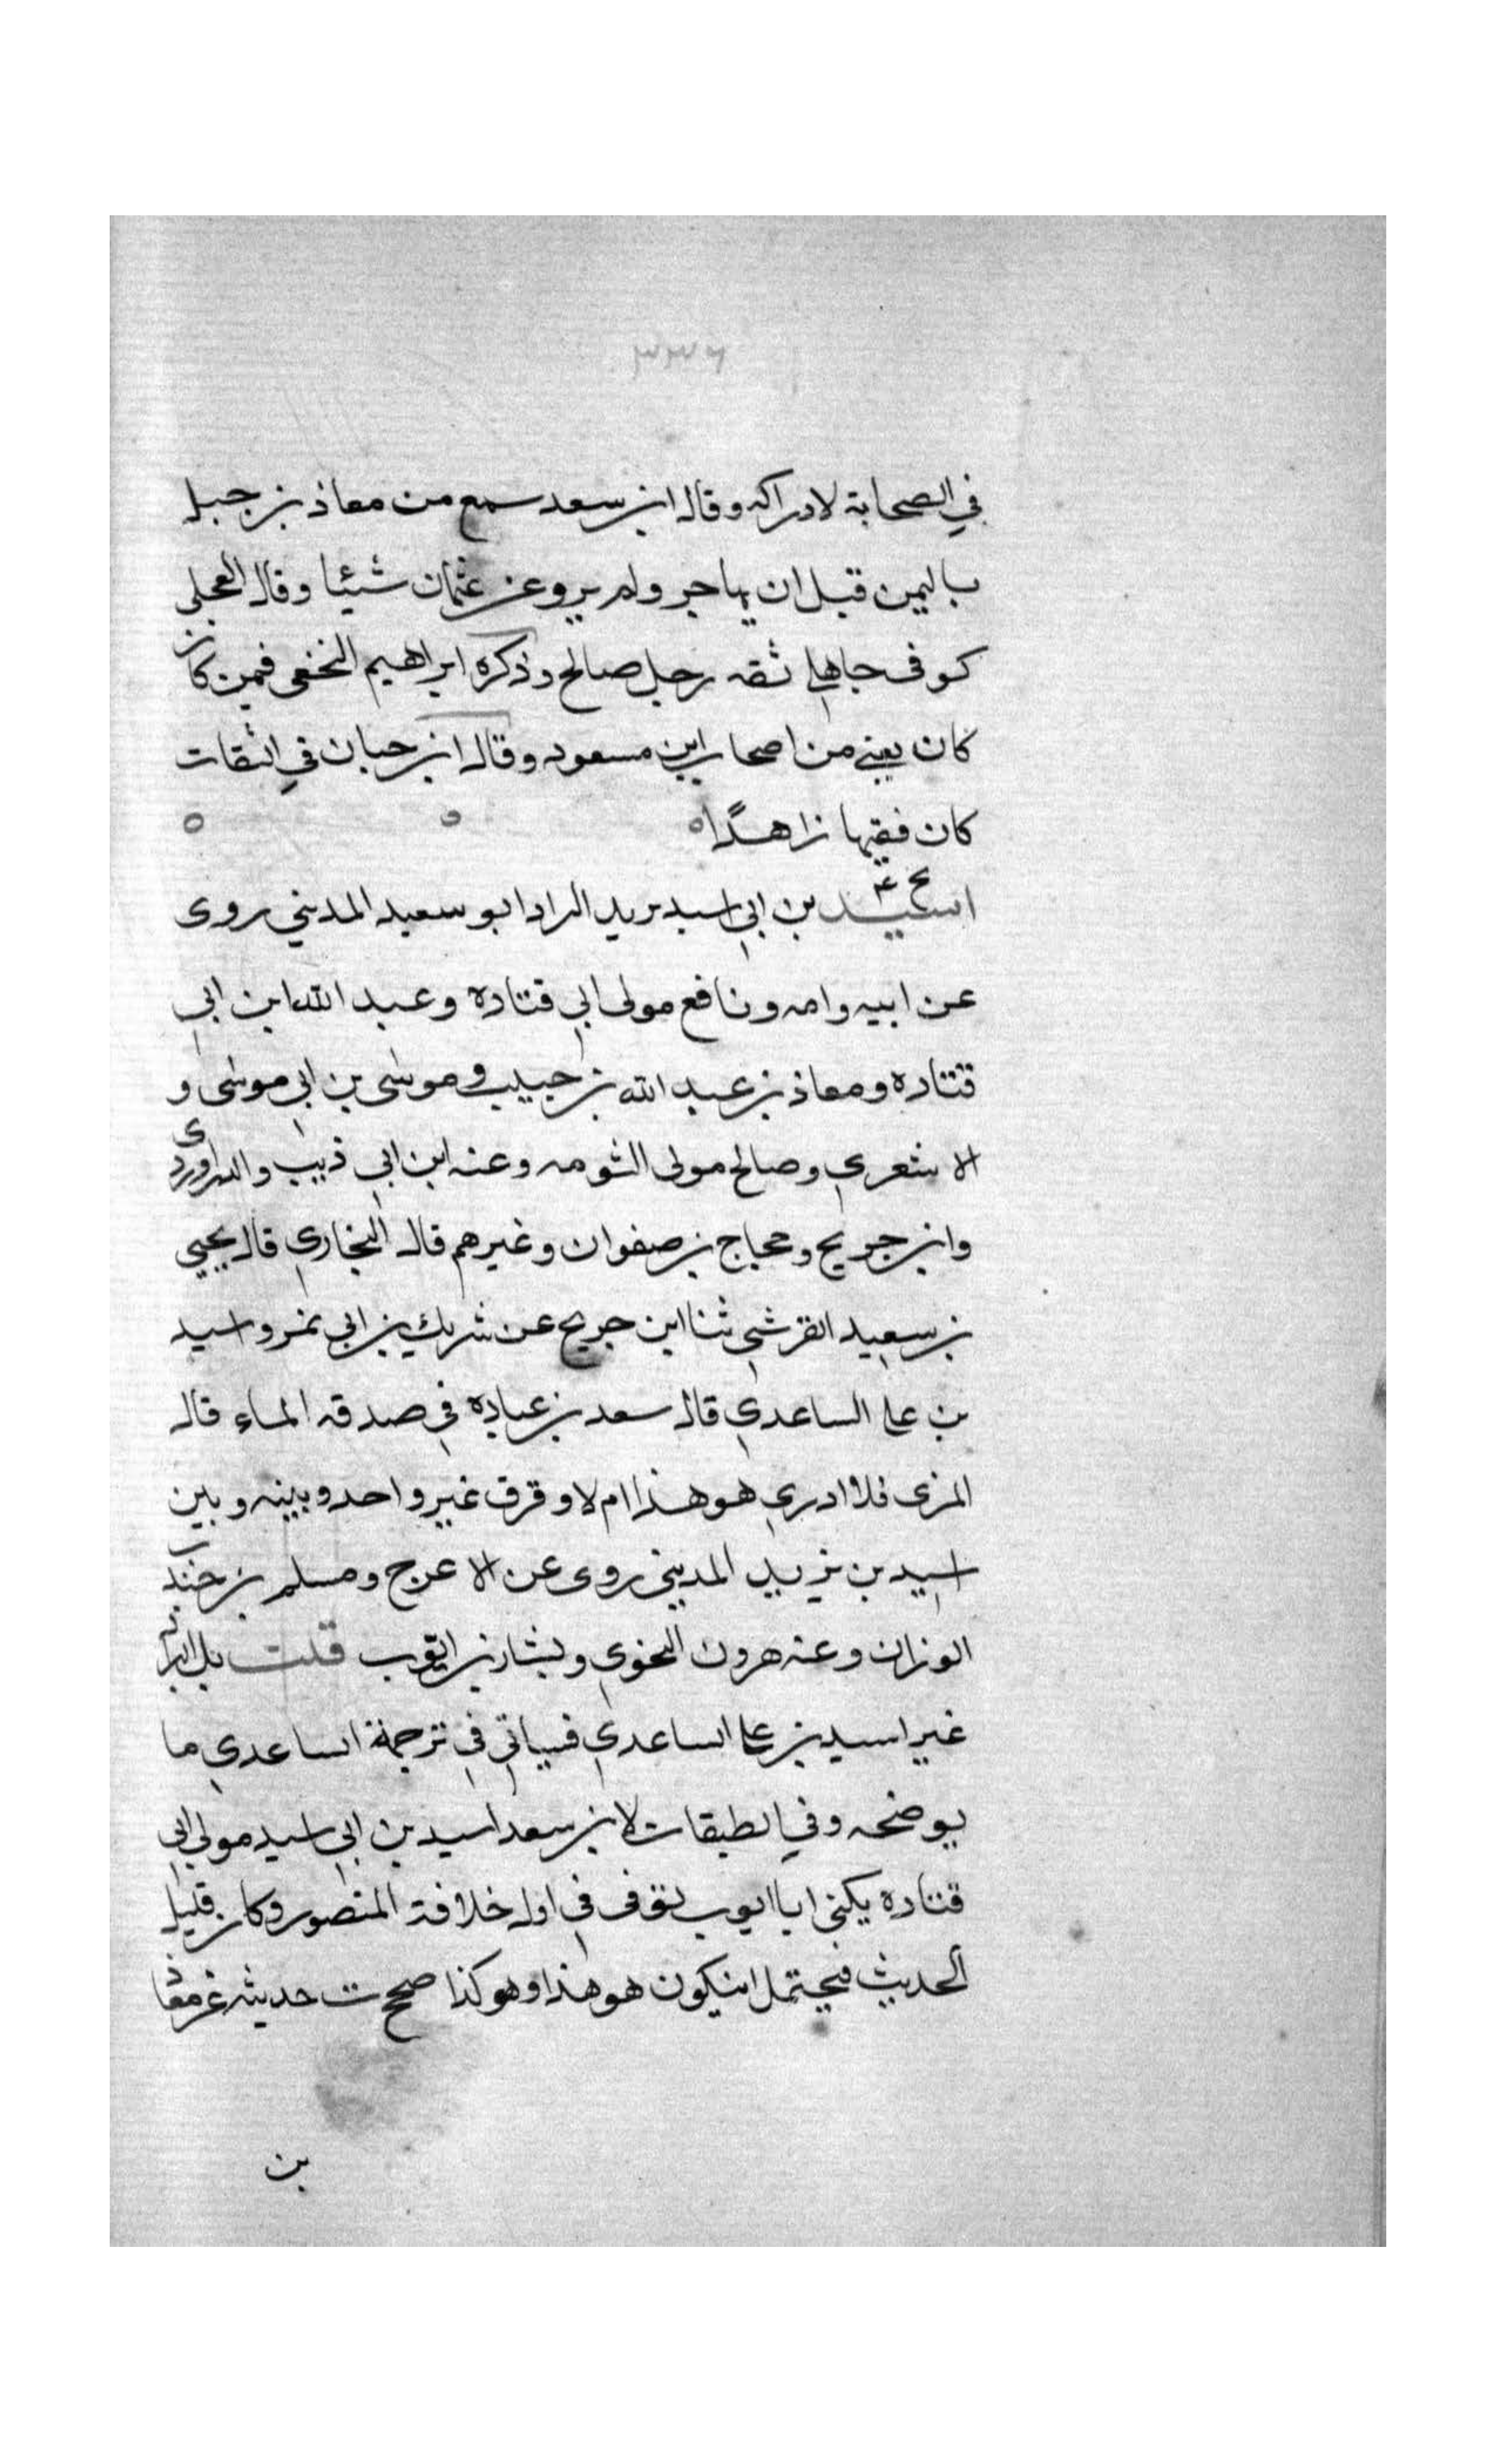 ٣٣٦
في الصحابة لادراكه وقال ابن سعد سمع من معاذ بن جبل
باليمن قبل ان يهاجر ولم يرو عن عثمان شيئا وقال العجلي
كوفى جاهلي ثقه رجل صالح وذكره ابراهيم النخعى فمين كان
كان يعني من اصحاب ابن مسعود وقال ابن حبان في الثقات
كان فقيها زاهدًا ه ه ه
بخ عم
اسيد بن ابي اسيد يريد البراد ابو سعيد المديني روى
عن ابيه وامه ونافع مولى ابي قتادة وعبد الله ابن ابي
قتتاده ومعاذ بن عبد الله بن حبيب وموسى بن ابي موسى و
الاشعري وصالح مولى الثومه وعنه ابن ابي ذيب والدراوردى
وابن جريج وحجاج بن صفوان وغيرهم قال البخاري قال يحيي
بن سعيد القرشي ثنا ابن جريج عن شريك بن ابي نمر واسيد
بن على الساعدي قال سعد بن عباده في صدقه الماء قال
المزى فلا ادري هو هذا ام لا وقرق غير واحد وبينه وبين
اسيد بن يزيد المديني روى عن الاعرج ومسلم بن جندب
الوزان وعنه هرون النحوي وبشار بن ايوب قلت بل البراد
غير اسيد بن على الساعدي فسياتي في ترجمة الساعدي ما
يوضحه وفي الطبقات لابن سعد اسيد بن ابي اسيد مولى ابي
قتاده يكنى ابا ايوب توفى في اول خلافة المنصور وكان قليل
الحديث فيحتمل ان يكون هو هذا وهو كذا صحح ت حديثه عن معاذ
بن